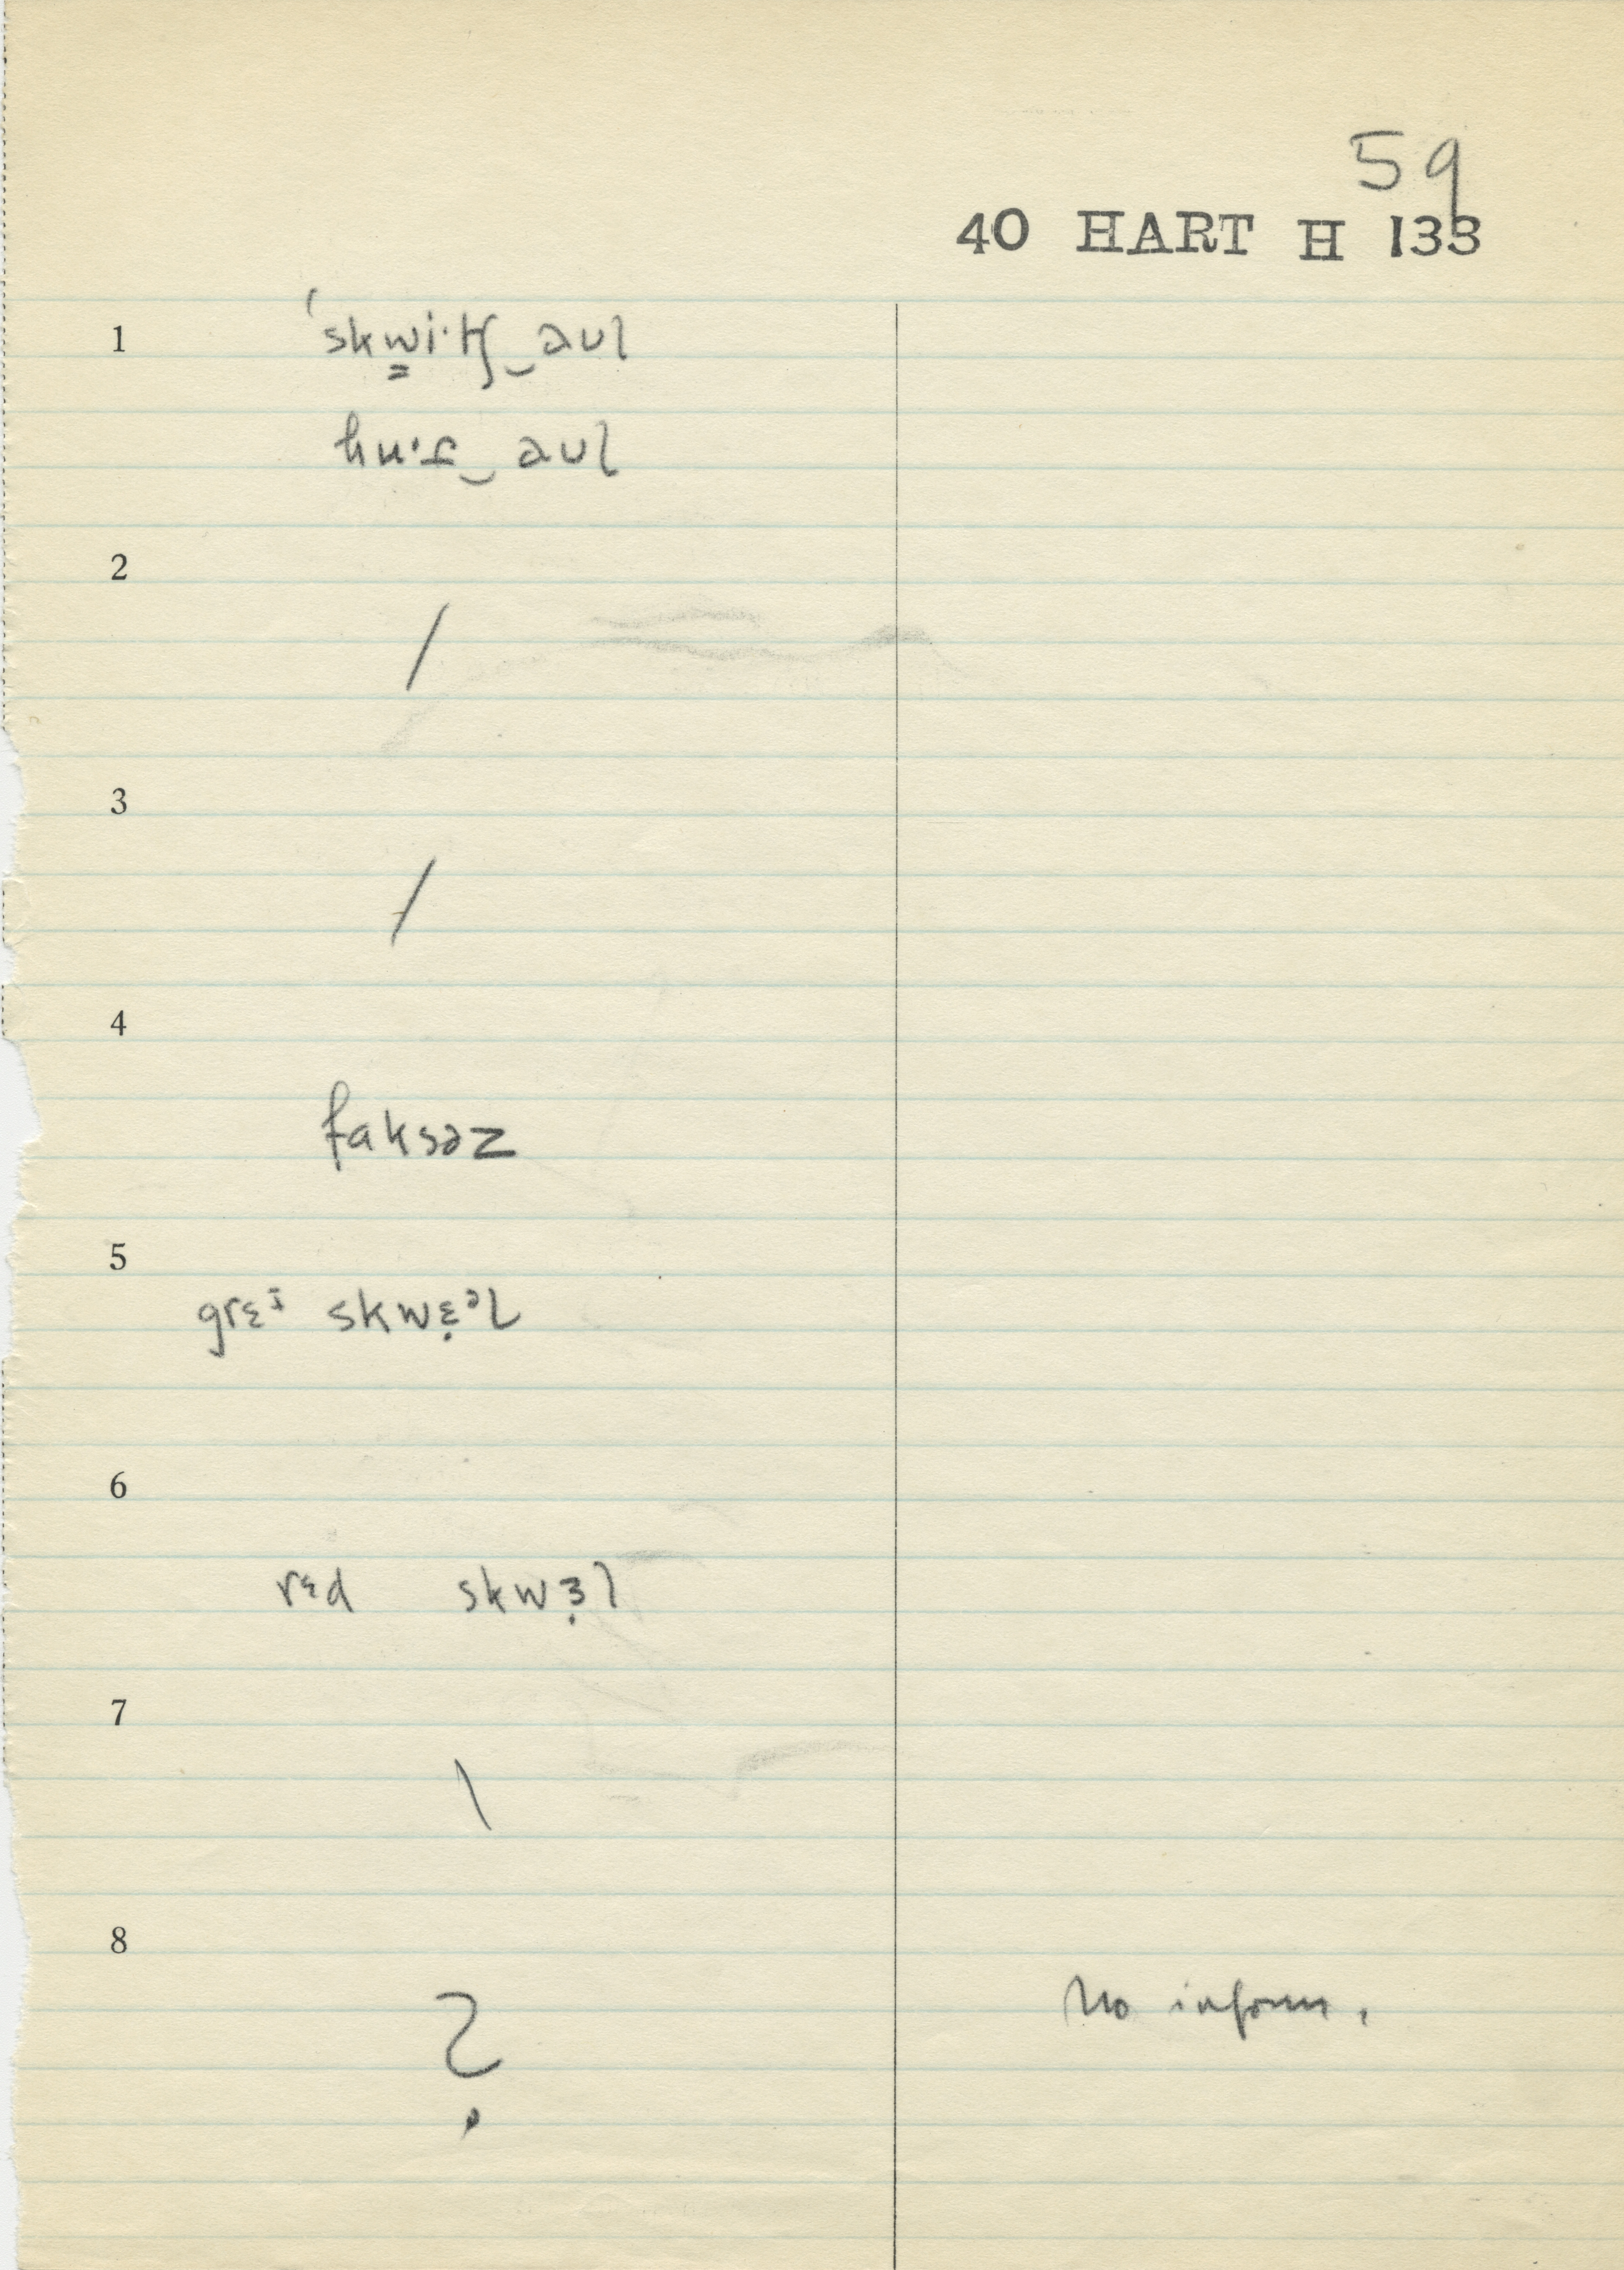 59
40 HART H 133
1 ˈskwi·tʃ‿aʊl
hu·t‿aʊl
2
/
3
/
4
faksəz
5
grɛɪ skwɛ̣ᵊl
6
rɛd skwɜ̣l
7
\
8
? No inform.